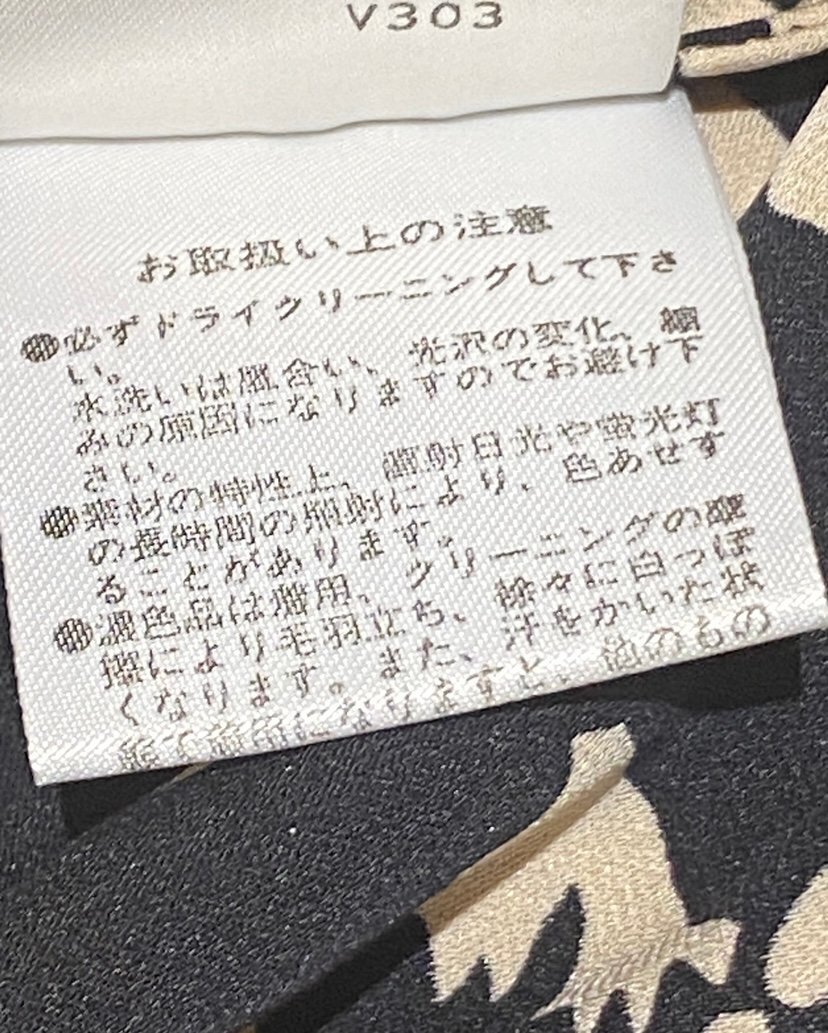 V303
お取扱い上の注意
●必ずドライクリーニングして下さ
い。
水洗いは風合い、光沢の変化、縮
みの原因になりますのでお避け下
さい。
●素材の特性上、直射日光や蛍光灯
の長時間の照射により、色あせす
ることがあります。
●濃色品は着用、クリーニングの摩
擦により毛羽立ち、徐々に白っぽ
くなります。また、汗をかいた状
態で着用になりますと、他のもの